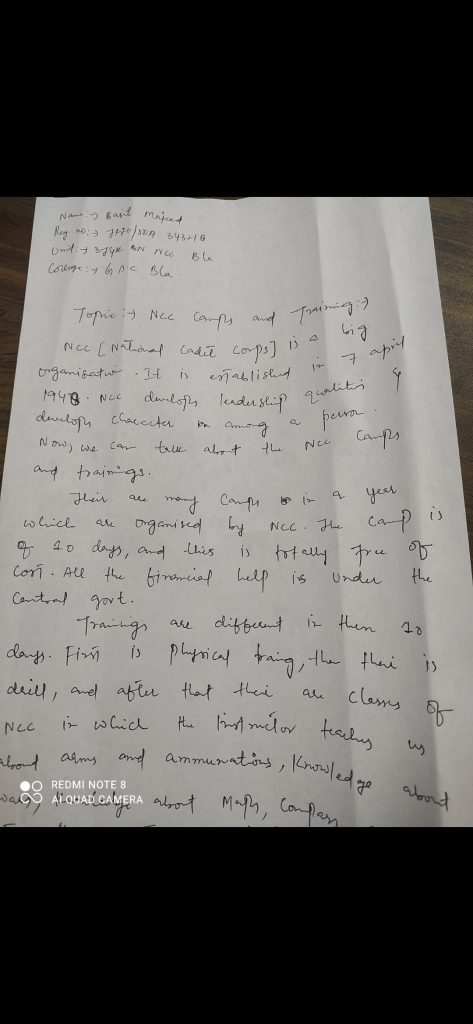 Name:→ Basit Majeed
Reg no:→ JK20/SDA 343218
Unit:→ 3J&K BN NCC Bla
College:→ GDC Bla.
Topic:→ NCC Camps and Training:→
NCC [National Cadet Corps] is a big
organisation. It is established in 7 april
1948. NCC develops leadership qualities &
develops character in among a person.
Now, we can talk about the NCC Camps
and trainings.
Their are many Camps in a year
which are organised by NCC. The Camp is
of 10 days, and this is totally free of
Cost. All the financial help is under the
Central govt.
Trainings are different in them 10
days. First is physical traing, the their is
drill, and after that their are classes of
NCC in which the Instructor teaches us
about arms and ammunations, Knowledge about
war, Knowledge about Maps, Compass
REDMI NOTE 8
AI QUAD CAMERA